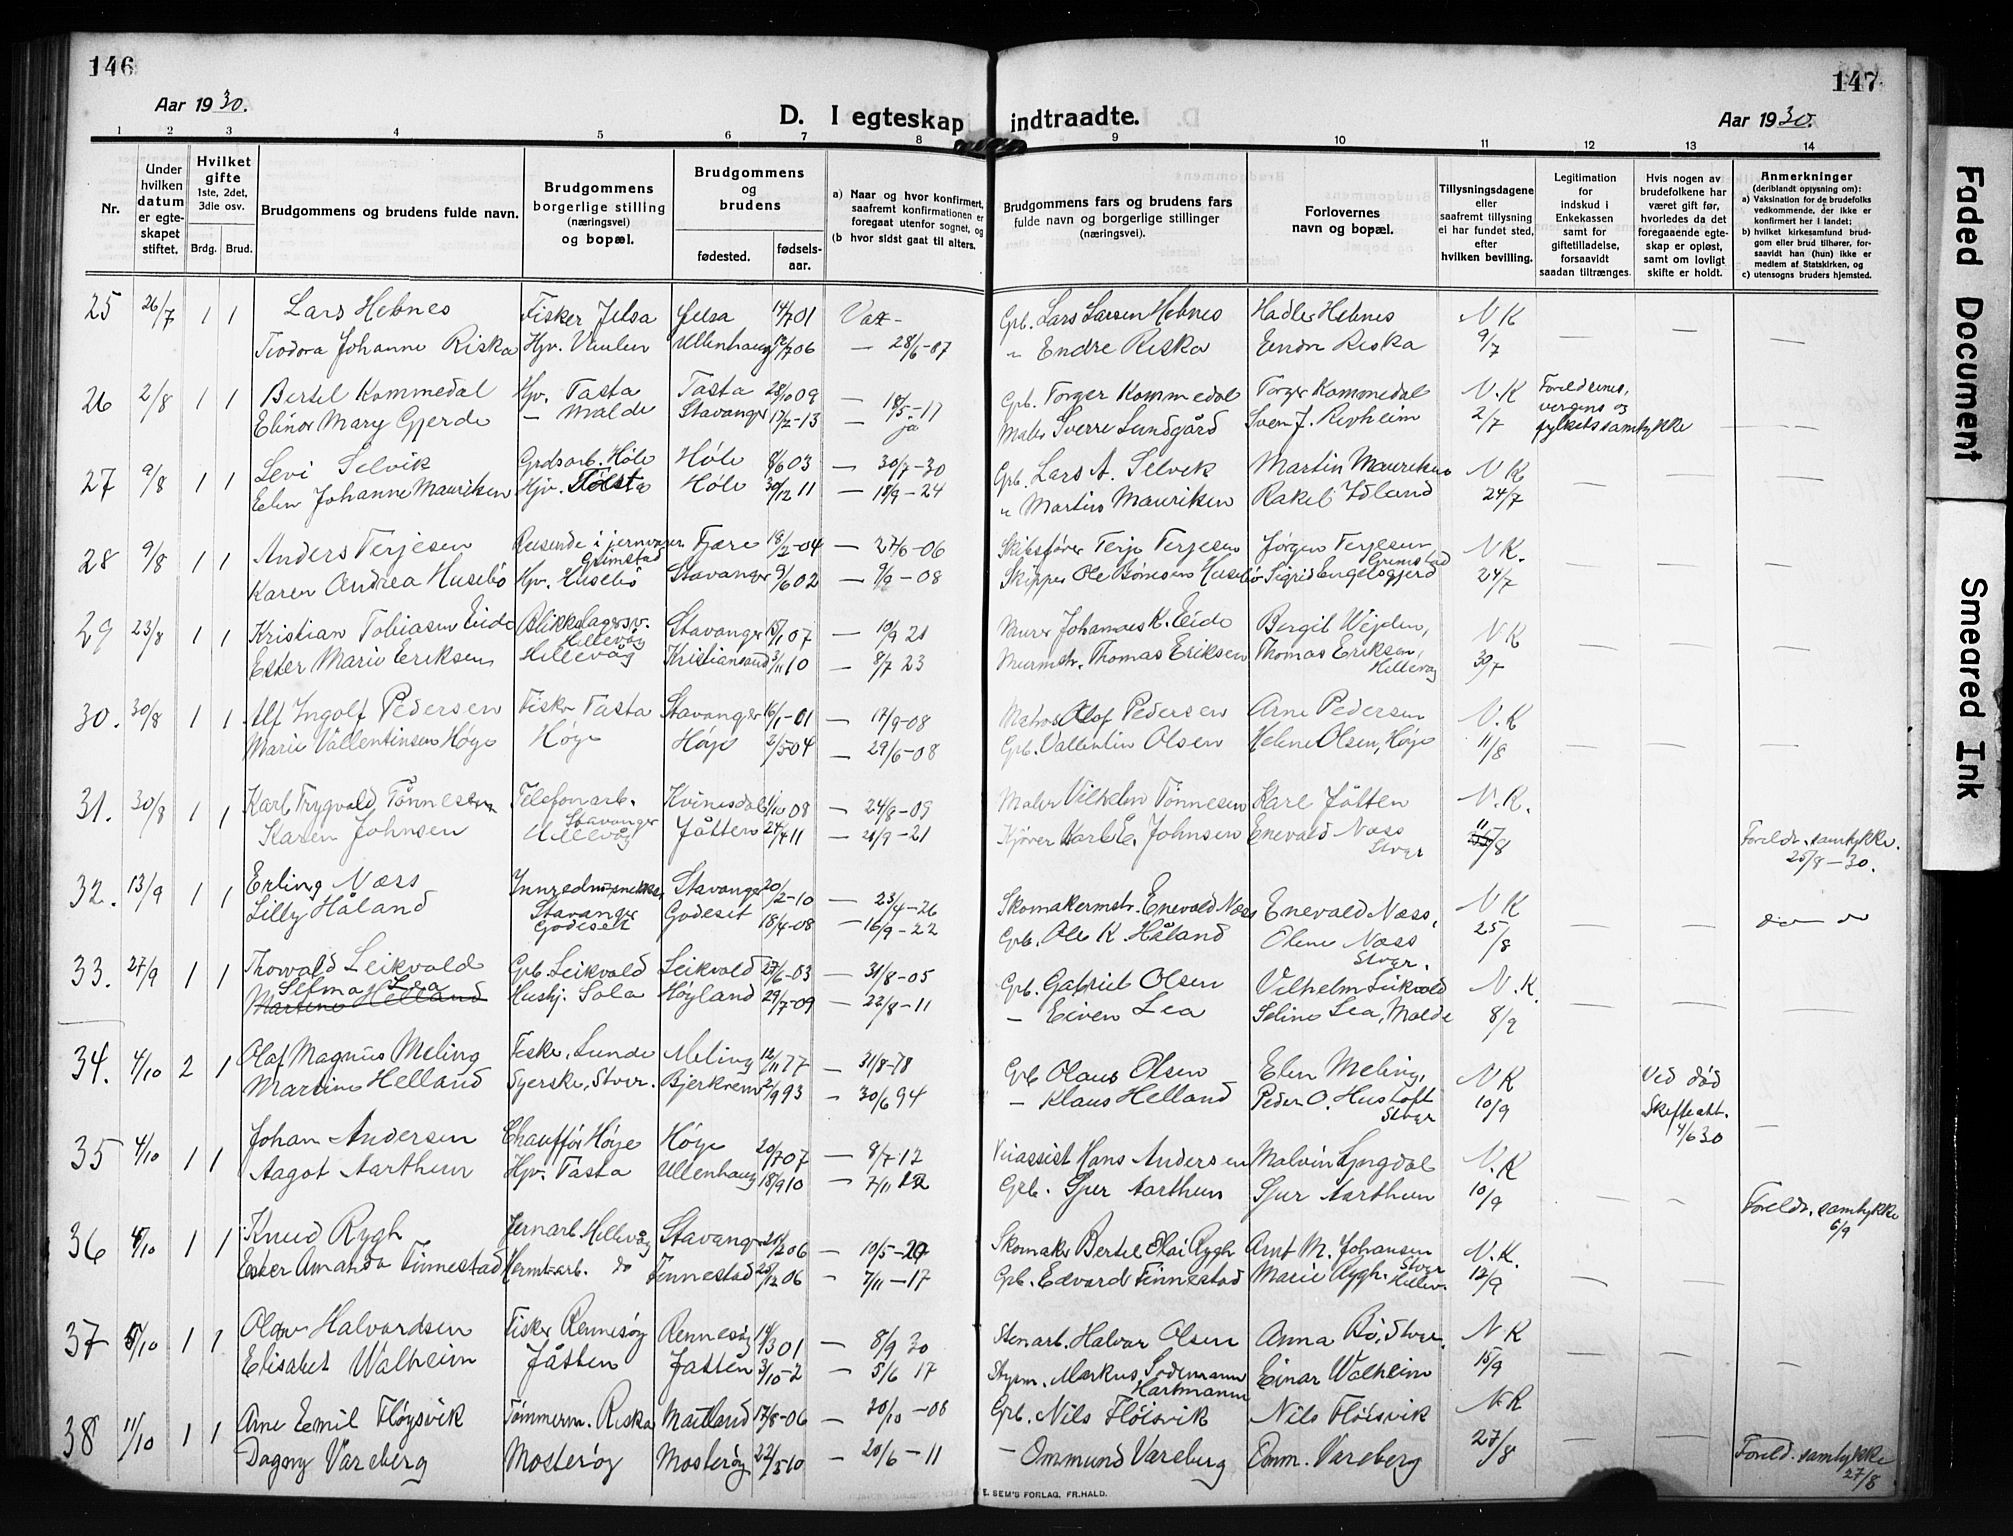 146
147
Aar 1930.
Aar 1930.
D. I egteskap indtraadte.
1 2 3 4 5 6 7 8 9 10 11 12 13 14
Nr.
Under hvilken datum er egteskapet stiftet.
Hvilket gifte 1ste, 2det, 3die osv.
Brdg. Brud.
Brudgommens og brudens fulde navn.
Brudgommens borgerlige stilling (næringsvei) og bopæl.
Brudgommens og brudens
fødested. fødselsaar.
a) Naar og hvor konfirmert, saafremt konfirmationen er foregaat utenfor sognet, og (b hvor sidst gaat til alters.
Brudgommens fars og brudens fars fulde navn og borgerlige stillinger (næringsvei).
Forlovernes navn og bopæl.
Tillysningsdagene eller saafremt tillysning ei har fundet sted, efter hvilken bevilling.
Legitimation for indskud i Enkekassen samt for giftetilladelse, forsaavidt saadan tiltrænges.
Hvis nogen av brudefolkene har været gift før, hvorledes da det foregaaende egteskap er opløst, samt om lovligt skifte er holdt.
Anmerkninger (deriblandt oplysning om): a) Vaksination for de brudefolks vedkommende, der ikke er konfirmert her i landet; b) hvilket kirkesamfund brudgom eller brud tilhører, forsaavidt han (hun) ikke er medlem af Statskirken, og c) utensogns bruders hjemsted.
25 26/7 1 1 Lars Hebnes Fisker Jelsa Jelsa 14/7 01 Grb. Lars Larsen Hebnes Hadler Hebnes N K
Teodora Johanne Riska Hjv. Vaulen Ullenhaug 06 — 28/6-07 " Endre Riska Endre Riska 9/7 — — —
26 2/8 1 1 Bertel Kommedal Hjv. Tasta Tasta 28/10 09 — 18/5-17 Grb. Torger Kommedal Torger Kommedal N.K Foreldrenes, vergens og fylkets samtykke
Elinor Mary Gjerde — Malde Stavanger 17/2-13 — ja Maler Sverre Lundgård Sven J. Revheim 2/7
27 9/8 1 1 Levi Selvik Grdsarb. Høle Høle 8/6 03 — 30/7-30 Grb. Lars A. Selvik Martin Mauriken N K
Elen Johanne Mauriken Hjv. Tasta Høle 30/12 11 — 18/9-24 " Martin Mauriken Rakel Idland 24/7 — — —
28 9/8 1 1 Anders Terjesen Reisende i jernvarer Grimstad Fjære 18/2-04 — 27/6-06 Skibsfører Terje Terjesen Jørgen Terjesen Grimstad N K.
Karen Andrea Husebö Hjv. Husebö Stavanger 9/6 02 — 9/9-08 Skipper Ole Bønesen Husebö Sigrid Engelsgjerd 24/7 — — —
29 23/8 1 1 Kristian Tobiasen Eide Blikkslagersv. Hillevåg Stavanger 15/1 07 — 10/9 21 Murer Johannes K. Eide Bergit Weiden, N K
Ester Marie Eriksen Hillevåg Kristiansand 3/11 10 — 8/7 23 Murmstr. Thomas Eriksen Thomas Eriksen, Hillevåg 30/7 — — —
30. 30/8 1 1 Alf Ingolf Pedersen Fisker Tasta Stavanger 16/1-01 — 17/9-08 Matros Olof Pedersen Arne Pedersen N.K
Marie Vallentinsen Høye Høye Høye 2/5 04 — 29/6-08 Grb. Vallentin Olsen Helene Olsen, Høye 11/8 — — —
31. 30/8 1 1 Karl Trygvald Tønnesen Telefonarb. Stavanger Kvinesdal 1/10 08 — 24/8-09 Maler Vilhelm Tønnesen Karl Jåtten N.K.
Karen Johnsen Hillevåg Jåtten 24/4 11 — 21/9-21 Kjører Karl E. Johnsen Enevald Næss Stvgr 11/8 Foreldr. samtykke. 25/8-30.
32. 13/9 1 1 Erling Næss Innredn.snekker, Stavanger Stavanger 20/2-10 — 23/4-26 Skomakermstr. Enevald Næss Enevald Næss, N K
Lilly Håland Godeset Godeset 18/4-08 — 16/9-22 Grb. Ole K. Håland Olene Næss Stvgr. 25/8 — — do
33. 27/9 1 1 Thorvald Leikvold Grb. Leikvold Leikvold 27/6-03 — 31/8-05 Grb. Gabriel Olsen Vilhelm Leikvold N.K.
Selma Lea Martine Helland Hushj. Sola Høyland 29/7-09 — 22/8-11 — Eiven Lea Seline Lea, Malde 8/9 — — —
34. 4/10 2 1 Olaf Magnus Meling Fisker, Sunde Meling 12/11 77 — 31/8-78 Grb Olaus Olsen Elen Meling, N K Ved død
Martine Helland Syerske, Stvgr. Bjerkreim 2/9 93 — 30/6 94 — Klaus Helland Peder O. Hustoft Stvgr 10/9 Skifteatt. 4/6 30 —
35 4/10 1 1 Johan Andersen Chauffør Høye Høye 20/7 07 — 8/7-12 Hans Andersen Malvin N.K
Aagot Aarthun Hjv. Tasta Ullenhaug 18/9 10 — 7/11 12 Grb. Sjur Aarthun Sjur Aarthun 10/9 — — Foreldr. samtykke 6/9
36 4/10 1 1 Knud Rygh Jernarb Hillevåg Stavanger 06 — 10/5-20 Skomaker Bertel Elai Rygh Arnt M. Johansen Stvgr N.K.
Ester Amanda Finnestad Hermt.arb. do Finnestad 25/12 06 — 7/11-17 Grb. Edvard Finnestad Marie Rygh. Hillev. 12/9 — — —
37 5/10 1 1 Olav Halvardsen Fisker Rennesøy Rennesøy 14/3 01 — 8/9 20 Stenarb. Halvar Olsen Anna Bø, Stvgr. N K
Elisabet Walheim Jåtten Jåtten 3/10-2 — 5/6 17 Stysm. Markus Sodemann Hartmann Einar Walheim 15/9 — — —
38 11/10 1 1 Arne Emil Fløysvik Tømmerm. Riska Maitland 17/8-06 — 20/10-08 Grb. Nils Fløisvik Nils Fløisvik N K
Dagny Vareberg Mosterøy Mosterøy 22/5 10 — 20/6-11 — Ommund Vareberg Omm. Vareberg 27/8 Foreld. samtykke 27/8
E. SEM'S FORLAG, FR.HALD.
Faded Document
Smeared Ink